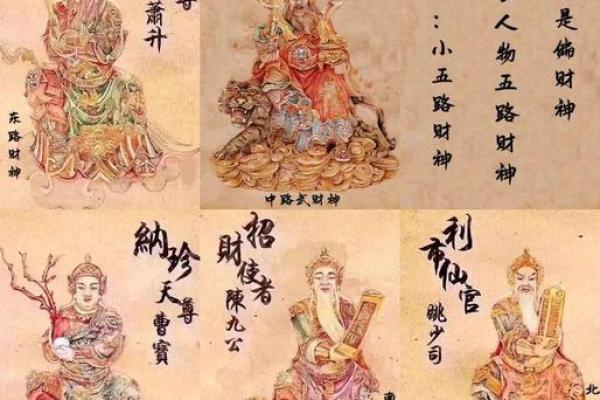 尊
蕭升
东路财神
中路武财神
是偏财神
人物五路财神
：小五路财神
納珍
天尊
曹寶
招
財使者
陳九公
利
市仙官
眺少司
北